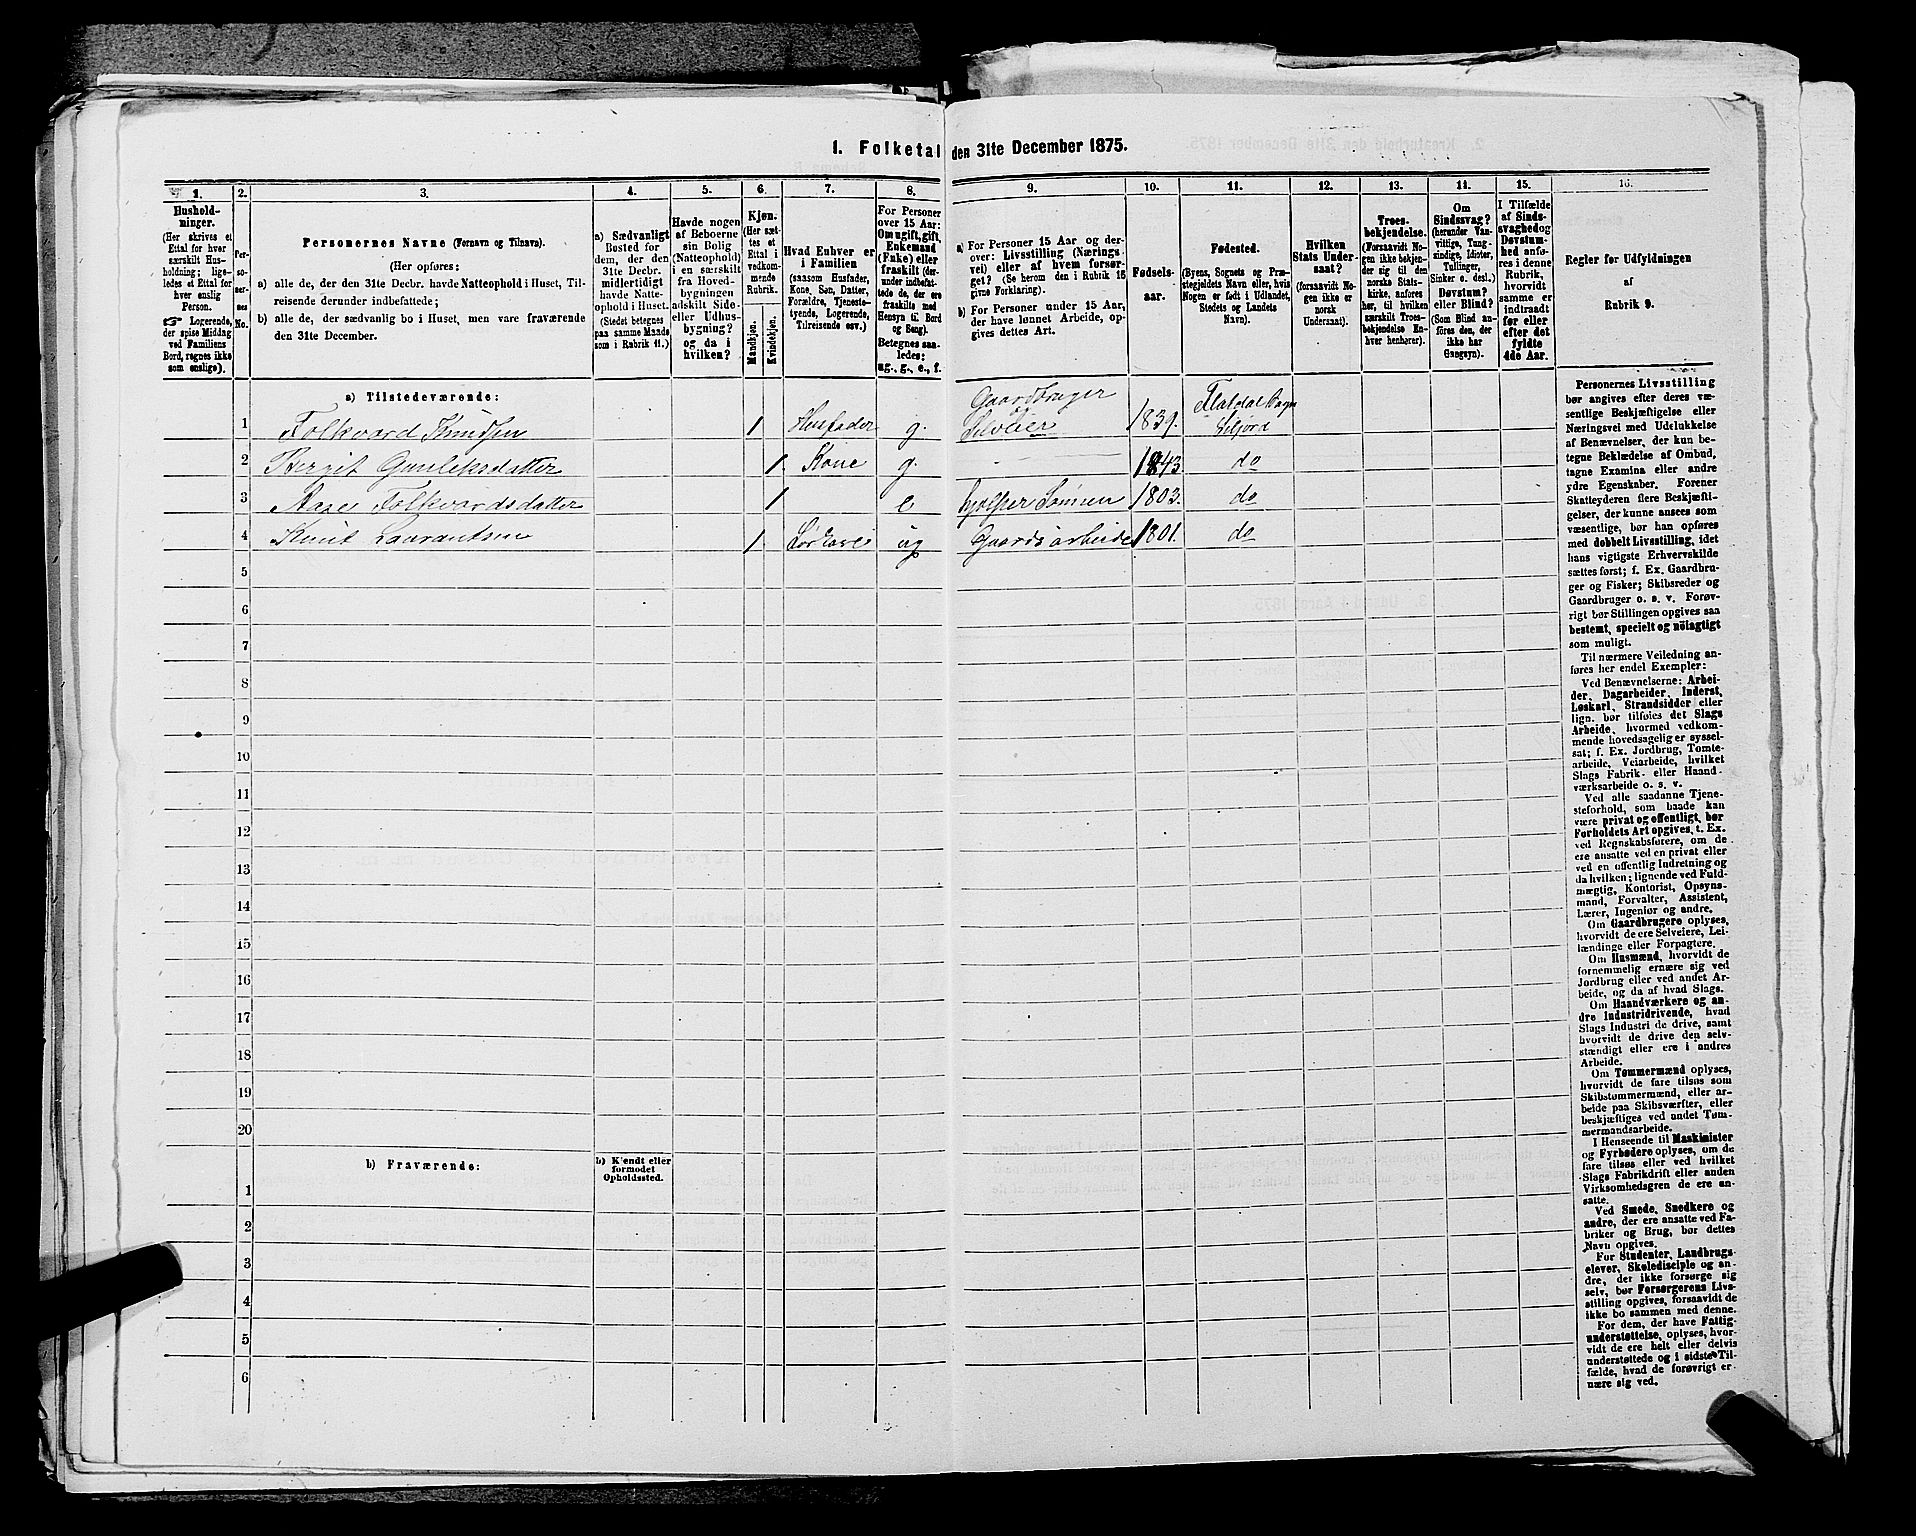 1. Folketal den 31te December 1875.
1. 2. 3. 4. 5. 6. 7. 8. 9. 10. 11. 12. 13. 14. 15. 16.
Hushold-
ninger.
(Her skrives et
Ettal for hver
særskilt Hus-
holdning; lige-
ledes et Ettal for
hver enslig
Person.
☞ Logerende,
der spise Middag
ved Familiens
Bord, regnes ikke
som enslige).
Per-
so-
ner-
nes
No.
Personernes Navne (Fornavn og Tilnavn).
(Her opføres:
a) alle de, der den 31te Decbr. havde Natteophold i Huset, Til-
reisende derunder indbefattede;
b) alle de, der sædvanlig bo i Huset, men vare fraværende
den 31te December.
a) Sædvanligt
Bosted for
dem, der den
31te Decbr.
midlertidigt
havde Natte-
ophold i Huset.
(Stedet betegnes
paa samme Maade
som i Rubrik 11.)
Havde nogen
af Beboerne
sin Bolig
(Natteophold)
i en særskilt
fra Hoved-
bygningen
adskilt Side-
eller Udhus-
bygning?
og da i
hvilken?
Kjøn.
(Her sæt-
tes et
Ettal i
vedkom-
mende
Rubrik.
Mandkjøn.
Kvindekjøn.
Hvad Enhver er
i Familien
(saasom Husfader,
Kone, Søn, Datter,
Forældre, Tjeneste-
tyende, Logerende,
Tilreisende osv.)
For Personer
over 15 Aar:
Om ugift, gift,
Enkemand
(Enke) eller
fraskilt (der-
under indbefat-
tede de, der ere
fraskilte med
Hensyn til Bord
og Seng).
Betegnes saa-
ledes:
ug., g., e., f.
a) For Personer 15 Aar og der-
over: Livsstilling (Nærings-
vei) eller af hvem forsør-
get? (Se herom den i Rubrik 16
givne Forklaring).
b) For Personer under 15 Aar,
der have lønnet Arbeide, op-
gives dettes Art.
Fødsels-
aar.
Fødested.
(Byens, Sognets og Præ-
stegjeldets Navn eller, hvis
Nogen er født i Udlandet,
Stedets og Landets
Navn).
Hvilken
Stats Under-
saat?
(forsaavidt No-
gen ikke er
norsk
Undersaat).
Troes-
bekjendelse.
(Forsaavidt No-
gen ikke bekjen-
der sig til den
norske Stats-
kirke, anføres
her, til hvilken
særskilt Troes-
bekjendelse En-
hver henhører).
Om
Sindssvag?
(herunder Van-
vittige, Tung-
sindige, Idioter,
Tullinger,
Sinker o. desl.)
Døvstum?
eller Blind?
(Som Blind an-
føres den, der
ikke har
Gangsyn).
I Tilfælde
af Sinds-
svaghed og
Døvstum-
hed anfø-
res i denne
Rubrik,
hvorvidt
samme er
indtraadt
før eller
efter det
fyldte
4de Aar.
Regler før Udfyldningen
af
Rubrik 9.
a) Tilstedeværende:
1 Folkvard Knudsen 1 Husfader g. Gaardbruger og Selveier 1839. Flatdal Sogn Seljord
2 Bergit Gunleksdatter 1 Kone g. 1843 do
3 Aase Folkvardsdatter 1 e 1803. do
4 Knut Laurantsen 1 ug Gaardsarbeide 1801. do
5
6
7
8
9
10
11
12
13
14
15
16
17
18
19
20
b) Fraværende:
b) Kjendt eller
formodet
Opholdssted.
1
2
3
4
5
6
Personernes Livsstilling
bør angives efter deres væ-
sentlige Beskjæftigelse eller
Næringsvei med Udelukkelse
af Benævnelser, der kun be-
tegne Beklædelse af Ombud,
tagne Examina eller andre
ydre Egenskaber. Forener
Skatteyderen flere Beskjæfti-
gelser, der kunne ansees som
væsentlige, bør han opføres
med dobbelt Livsstilling, idet
hans vigtigste Erhvervskilde
sættes først; f. Ex. Gaardbru-
ger og Fisker; Skibsreder og
Gaardbruger o. s. v. Forøv-
rigt bør Stillingen opgives saa
bestemt, specielt og nöiagtigt
som muligt.
Til nærmere Veiledning an-
føres her endel Exempler:
Ved Benævnelserne: Arbei-
der, Dagarbeider, Inderst,
Løskarl, Strandsidder eller
lign. bør tilføies det Slags
Arbeide, hvormed vedkom-
mende hovedsagelig er syssel-
sat; f. Ex. Jordbrug, Tomte-
arbeide, Veiarbeide, hvilket
Slags Fabrik- eller Haand-
værksarbeide o. s. v.
Ved alle saadanne Tjene-
steforhold, som baade kan
være privat og offentligt, bør
Forholdets Art opgives, t. Ex.
ved Regnskabsførere, om de
ere ansatte ved en privat eller
ved en offentlig Indretning og
da hvilken; lignende ved Fuld-
mægtig, Kontorist, Opsyns-
mand, Forvalter, Assistent,
Lærer, Ingeniør og andre.
Om Gaardbrugere oplyses,
hvorvidt de ere Selveiere, Lei-
lændinge eller Forpagtere.
Om Husmænd, hvorvidt de
fornemmelig ernære sig ved
Jordbrug eller ved andet Ar-
beide, og da af hvad Slags.
Om Haandværkere og an-
dre Industridrivende, hvad
Slags Industri de drive, samt
hvorvidt de drive den selv-
stændigt eller ere i andres
Arbeide.
Om Tømmermænd oplyses,
hvorvidt de fare tilsøs som
Skibstømmermænd, eller ar-
beide paa Skibsværfter, eller
beskjæftiges ved andet Tøm-
mermandsarbeide.
I Henseende til Maskinister
og Fyrbødere oplyses, om de
fare tilsøs eller ved hvilket
Slags Fabrikdrift eller anden
Virksomhedsgren de ere an-
satte.
Ved Smede, Snedkere og
andre, der ere ansatte ved Fa-
briker og Brug, bør dettes
Navn opgives.
For Studenter, Landbrugs-
elever, Skoledisciple og an-
dre, der ikke forsørge sig
selv, bør Forsørgerens Livs-
stilling opgives, forsaavidt de
ikke bo sammen med denne.
For dem, der have Fattig-
understøttelse, oplyses, hvor-
vidt de ere helt eller delvis
understøttede og i sidste Til-
fælde, hvad de forøvrigt er-
nære sig ved.